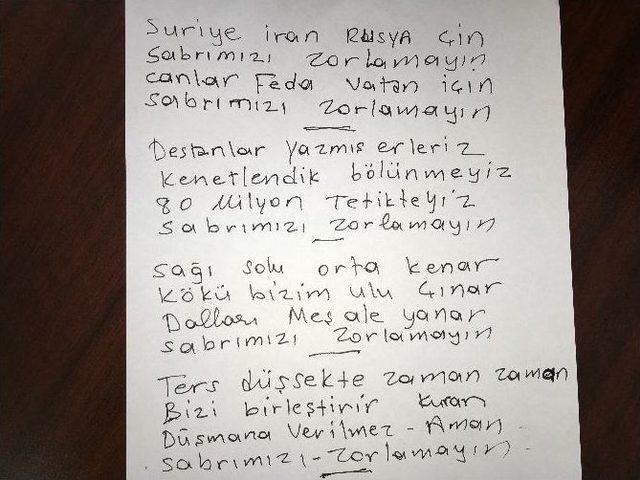 Suriye iran RUSYA Çin
Sabrımızı zorlamayın
canlar Feda Vatan için
sabrımızı zorlamayın
Destanlar yazmış erleriz
kenetlendik bölünmeyiz
80 Milyon Tetikteyiz
sabrımızı zorlamayın
sağı solu orta kenar
kökü bizim ulu Çınar
Dalları Meşale yanar
sabrımızı zorlamayın
Ters düşsekte zaman zaman
Bizi birleştirir kuran
Düşmana Verilmez - Aman
sabrımızı - zorlamayın